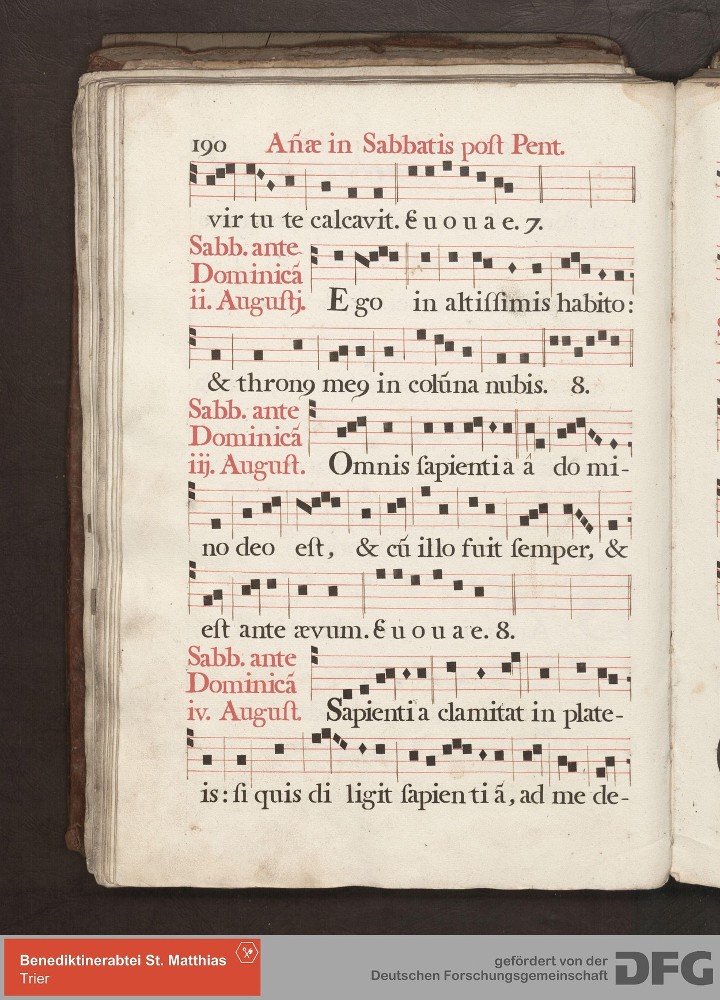 190 Añæ in Sabbatis poſt Pent.
vir tu te calcavit. E u o u a e. 7.
Sabb. ante
Dominicã
ii. Auguſtj.
Ego in altiſſimis habito:
& thron9 me9 in colũna nubis. 8.
Sabb. ante
Dominicã
iij. Auguſt.
Omnis ſapienti a á do mi-
no deo eſt, & cũ illo fuit ſemper, &
eſt ante ævum. E u o u a e. 8.
Sabb. ante
Dominicã
iv. Auguſt.
Sapienti a clamitat in plate-
is: ſi quis di ligit ſapien ti ã, ad me de-
Benediktinerabtei St. Matthias
Trier
gefördert von der
Deutschen Forschungsgemeinschaft
DFG